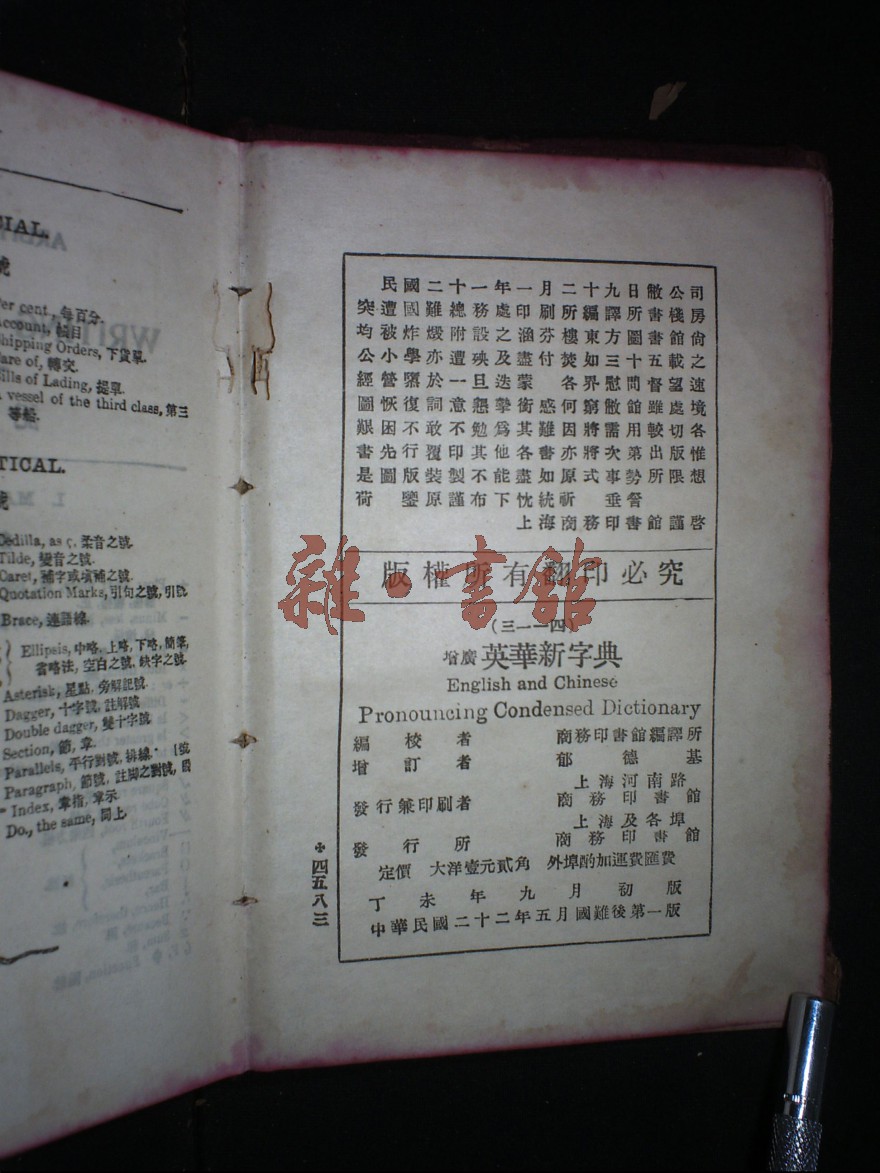 IAL.
號
Per cent, 每百分.
Account, 賬目
Shipping Orders, 下貨單.
Care of, 轉交.
Bills of Lading, 提單.
vessel of the third class, 第三
等船.
TICAL.
號
Cedilla, as ç. 柔音之號.
Tilde, 變音之號.
Caret, 補字或填補之號.
Quotation Marks, 引句之號, 引
Brace, 連語線.
Ellipsis, 中略, 上略, 下略, 簡筆,
省略法, 空白之號, 缺字之號.
Asterisk, 星點, 旁解記號.
Dagger, 十字號, 註解號
Double dagger, 雙十字號
Section, 節, 章.
Parallels, 平行對號, 排線. [號
Paragraph, 節號, 註脚之對號, 段
Index, 章指, 章示.
Do., the same, 同上.
民國二十一年一月二十九日敝公司
突遭國難總務處印刷所編譯所書棧房
均被炸燬附設之涵芬樓東方圖書館尚
公小學亦遭殃及盡付焚如三十五載之
經營隳於一旦迭蒙 各界慰問督望速
圖恢復詞意懇摯銜感何窮敝館雖處境
艱困不敢不勉爲其難因將需用較切各
書先行覆印其他各書亦將次第出版惟
是圖版裝製不能盡如原式事勢所限想
荷 鑒原謹布下忱統祈 垂詧
上海商務印書館謹啓
版權所有翻印必究
雜·書館
(三一一四)
增廣 英華新字典
English and Chinese
Pronouncing Condensed Dictionary
編校者 商務印書館編譯所
增訂者 郁德基
上海河南路
發行兼印刷者 商務印書館
上海及各埠
發行所 商務印書館
定價 大洋壹元貳角 外埠酌加運費匯費
丁未年九月初版
中華民國二十二年五月國難後第一版
四五八三